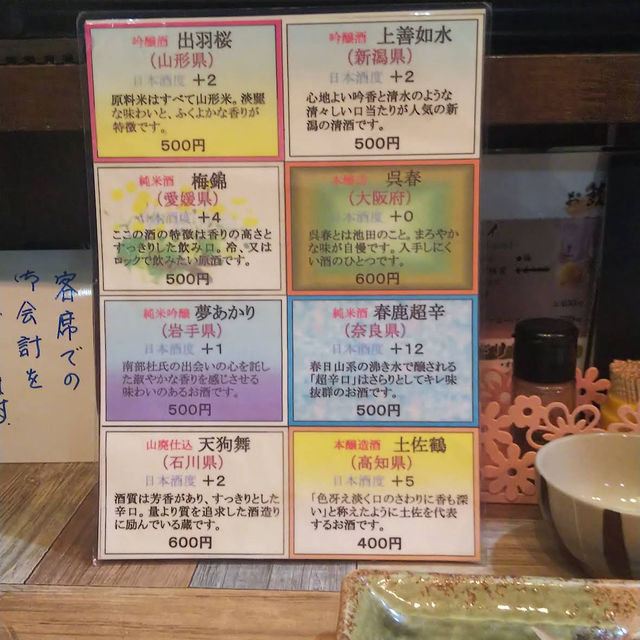 吟醸酒 出羽桜
(山形県)
日本酒度 +2
原料米はすべて山形米。淡麗
な味わいと、ふくよかな香りが
特徴です。
500円
吟醸酒 上善如水
(新潟県)
日本酒度 +2
心地よい吟香と清水のような
清々しい口当たりが人気の新
潟の清酒です。
500円
純米酒 梅錦
(愛媛県)
日本酒度 +4
ここの酒の特徴は香りの高さと
すっきりした飲み口。冷、又は
ロックで飲みたい原酒です。
500円
本醸造 呉春
(大阪府)
日本酒度 +0
呉春とは池田のこと。まろやか
な味が自慢です。入手しにく
い酒のひとつです。
600円
純米吟醸 夢あかり
(岩手県)
日本酒度 +1
南部杜氏の出会いの心を託し
た淑やかな香りを感じさせる
味わいのあるお酒です。
500円
純米酒 春鹿超辛
(奈良県)
日本酒度 +12
春日山系の沸き水で醸される
「超辛口」はさらりとしてキレ味
抜群のお酒です。
500円
山廃仕込 天狗舞
(石川県)
日本酒度 +2
酒質は芳香があり、すっきりとした
辛口。量より質を追求した酒造り
に励んでいる蔵です。
600円
本醸造酒 土佐鶴
(高知県)
日本酒度 +5
「色冴え淡く口のさわりに香も深
い」と称えたように土佐を代表
するお酒です。
400円
客席での
お会計を